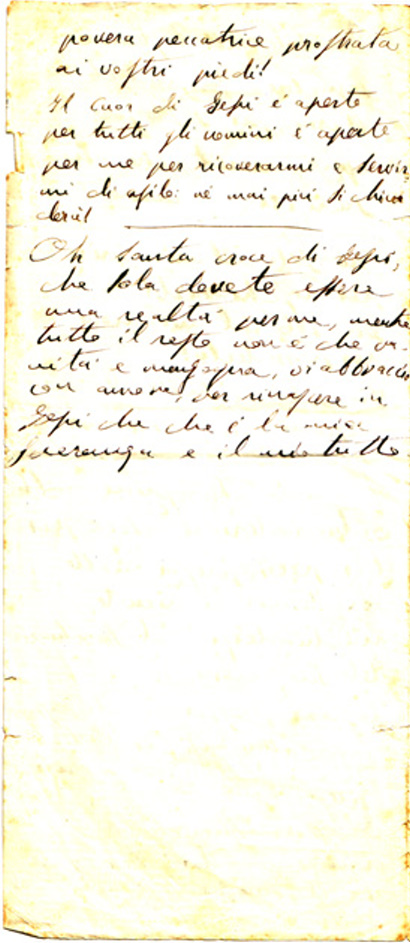 povera peccatrice prostrata
ai vostri piedi!
Il cuor di Gesù è aperto
per tutti gli uomini è aperto
per me per ricoverarmi e servir
mi di asilo: nè mai più si chiu
derà!
Oh santa croce di Gesù,
che sola dovete essere
una realtà per me, mentre
tutto il resto non è che va-
nità e menzogna, vi abbraccio
con amore, per rinascere in
Gesù che che è la mia
speranza e il mio tutto